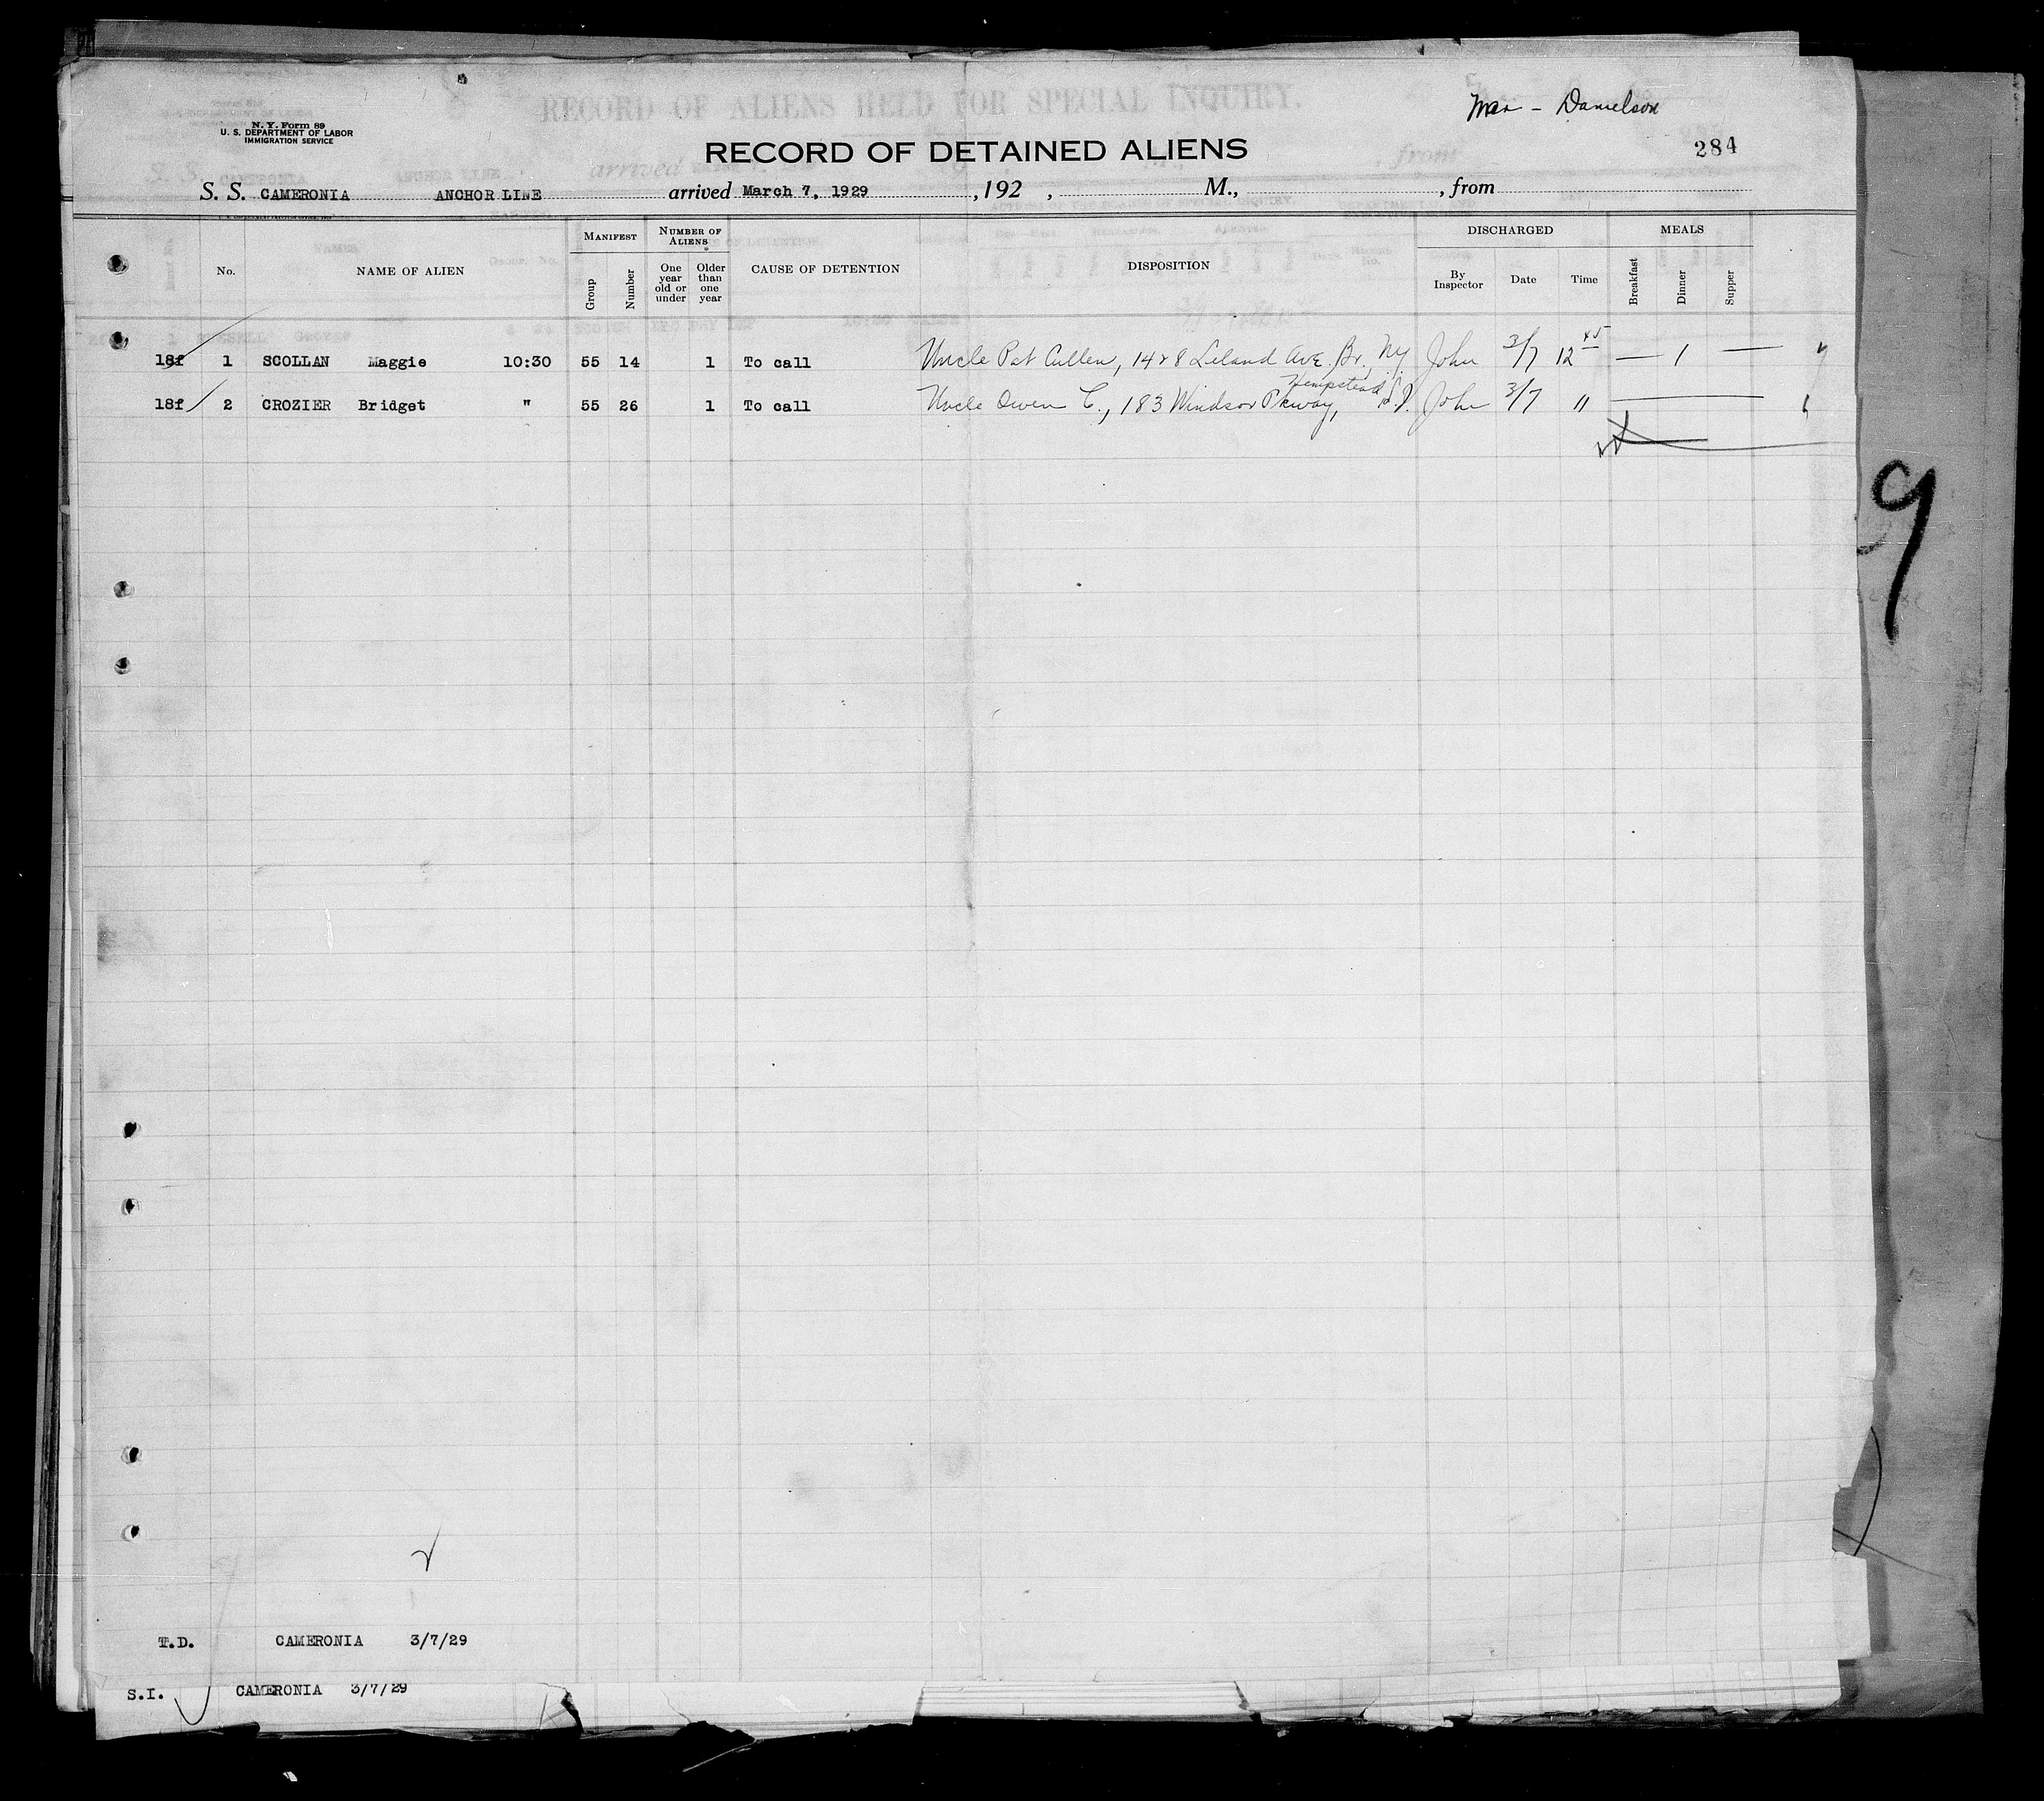 RECORD OF ALIENS HELD FOR SPECIAL INQUIRY.
N. Y. Form 89
U. S. DEPARTMENT OF LABOR
IMMIGRATION SERVICE
Danielson
RECORD OF DETAINED ALIENS
284
S. S. CAMERONIA ANCHOR LINE arrived March 7, 1929 , 192 , M., , from
No. NAME OF ALIEN MANIFEST NUMBER OF ALIENS CAUSE OF DETENTION DISPOSITION DISCHARGED MEALS
Group Number One year old or under Older than one year By Inspector Date Time Breakfast Dinner Supper
18f 1 SCOLLAN Maggie 10:30 55 14 1 To call Uncle Pat Cullen, 1428 Leland Ave. Bx. NY John 3/7 12 45 — 1 —
18f 2 CROZIER Bridget " 55 26 1 To call Uncle Owen C., 183 Windsor Pkway, Hempstead L.I. John 3/7 "
9
T.D. CAMERONIA 3/7/29
S.I. CAMERONIA 3/7/29